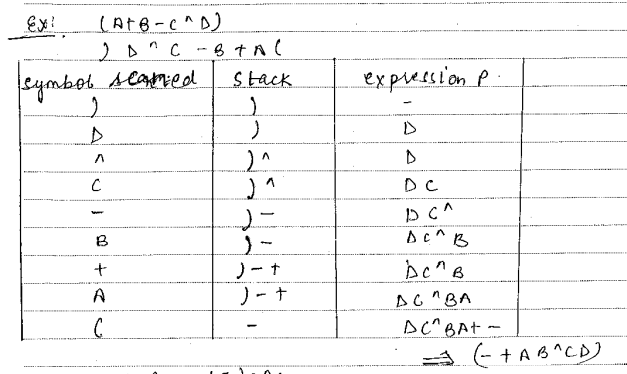 Ex: (A+B-C^D)
) D ^ C - B + A (
symbol scanned stack expression P.
) ) -
D ) D
^ ) ^ D
C ) ^ D C
- ) - D C ^
B ) - D C ^ B
+ ) - + D C ^ B
A ) - + D C ^ B A
( - D C ^ B A + -
⇒ (- + A B ^ C D)